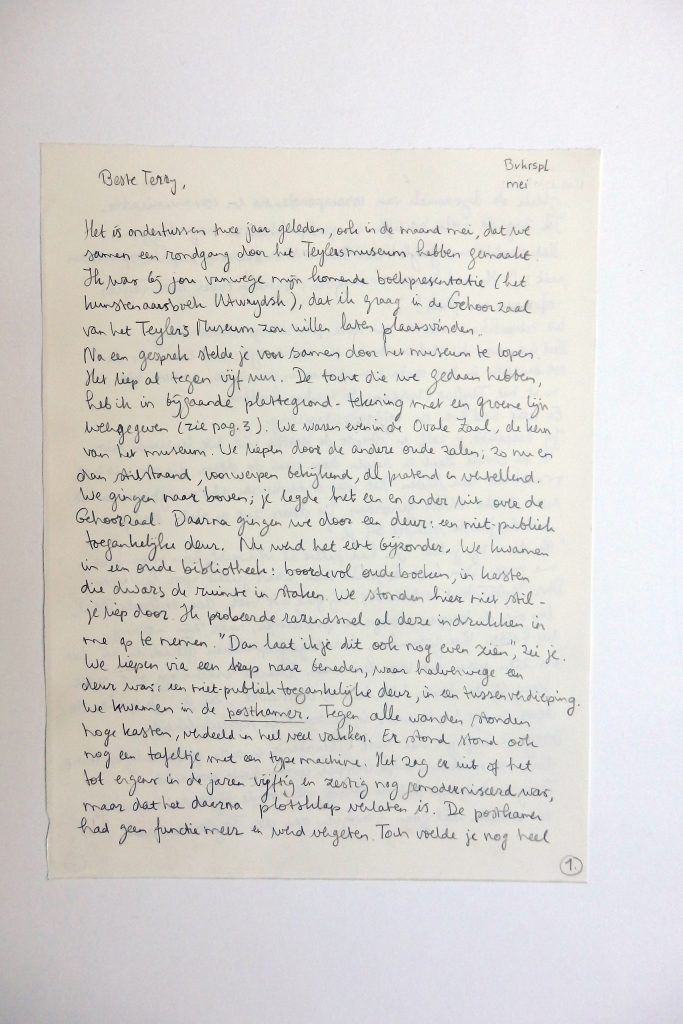 Bvhrspl
mei
Beste Terry,
Het is ondertussen twee jaar geleden, ook in de maand mei, dat we
samen een rondgang door het Teylersmuseum hebben gemaakt
Ik was bij jou vanwege mijn komende boekpresentatie (het
kunstenaarsboek Utwrydsk), dat ik graag in de Gehoorzaal
van het Teylers Museum zou willen laten plaatsvinden.
Na een gesprek stelde je voor samen door het museum te lopen
Het liep al tegen vijf uur. De tocht die we gedaan hebben,
heb ik in bijgaande plattegrond-tekening met een groene lijn
weergegeven (zie pag. 3). We waren even in de Ovale Zaal, de kern
van het museum. We liepen door de andere oude zalen; zo nu en
dan stilstaand, voorwerpen bekijkend, al pratend en vertellend.
We gingen naar boven; je legde het een en ander uit over de
Gehoorzaal. Daarna gingen we door een deur: een niet-publiek
toegankelijke deur. Nu werd het echt bijzonder. We kwamen
in een oude bibliotheek: boordevol oude boeken, in kasten
die dwars de ruimte in staken. We stonden hier niet stil -
je liep door. Ik probeerde razendsnel al deze indrukken in
me op te nemen. "Dan laat ik je dit ook nog even zien", zei je.
We liepen via een trap naar beneden, waar halverwege een
deur was: een niet-publiek toegankelijke deur, in een tussenverdieping.
We kwamen in de postkamer. Tegen alle wanden stonden
hoge kasten, verdeeld in heel veel vakken. Er stond stond ook
nog een tafeltje met een typemachine. Het zag er uit of het
tot ergens in de jaren vijftig en zestig nog gemoderniseerd was,
maar dat het daarna plotsklap verlaten is. De postkamer
had geen functie meer en werd vergeten. Toch voelde je nog heel
1.